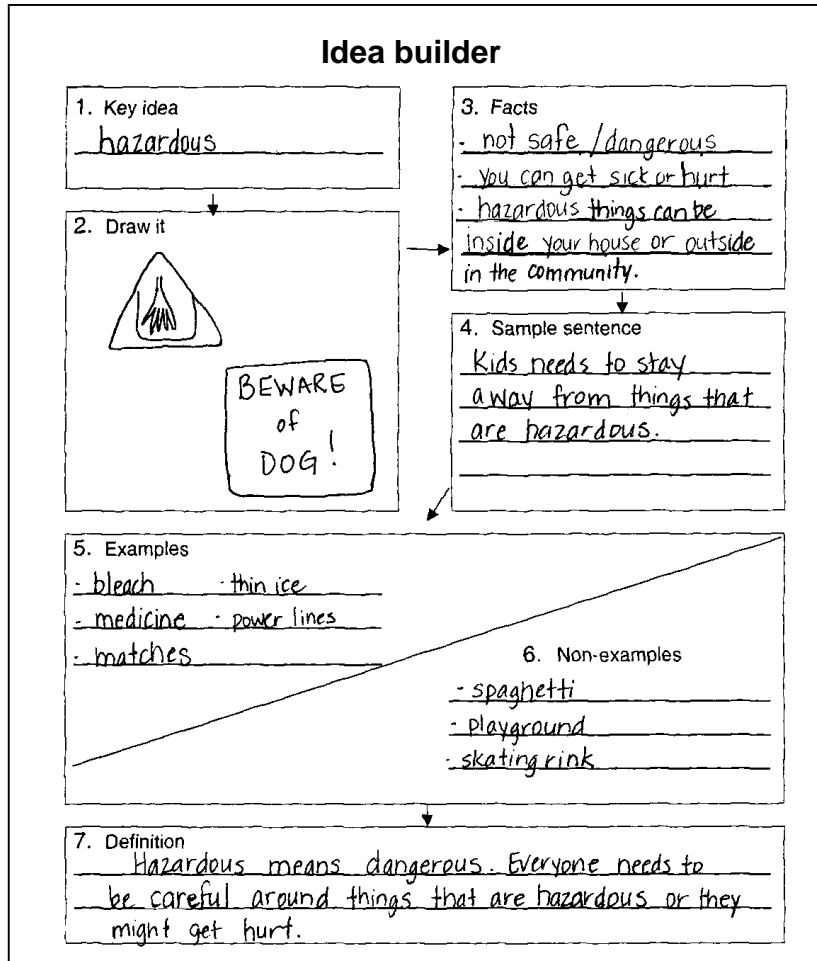 Idea builder
1. Key idea
hazardous
2. Draw it
BEWARE
of
DOG!
3. Facts
- not safe / dangerous
- you can get sick or hurt
- hazardous things can be
inside your house or outside
in the community.
4. Sample sentence
Kids needs to stay
away from things that
are hazardous.
5. Examples
- bleach - thin ice
- medicine - power lines
- matches
6. Non-examples
- spaghetti
- playground
- skating rink
7. Definition
Hazardous means dangerous. Everyone needs to
be careful around things that are hazardous or they
might get hurt.